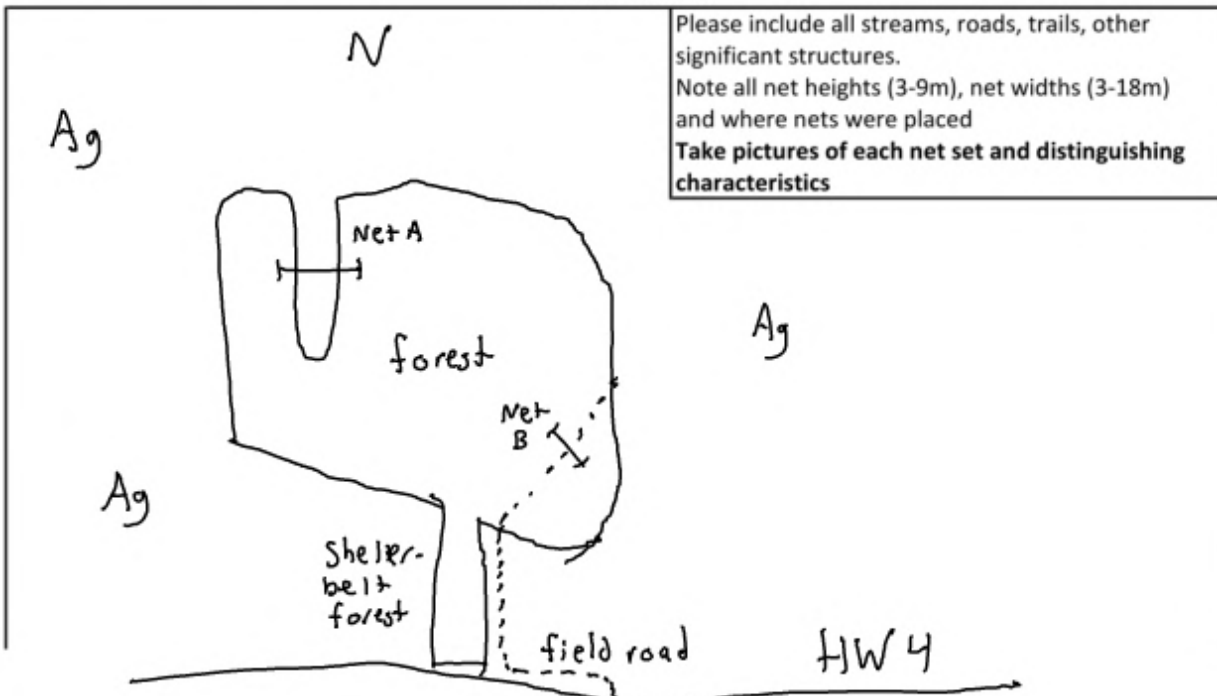 N
Please include all streams, roads, trails, other
significant structures.
Note all net heights (3-9m), net widths (3-18m)
and where nets were placed
Take pictures of each net set and distinguishing
characteristics
Ag
Net A
Ag
forest
Net
B
Ag
Shelter-
belt
forest
field road
HW 4